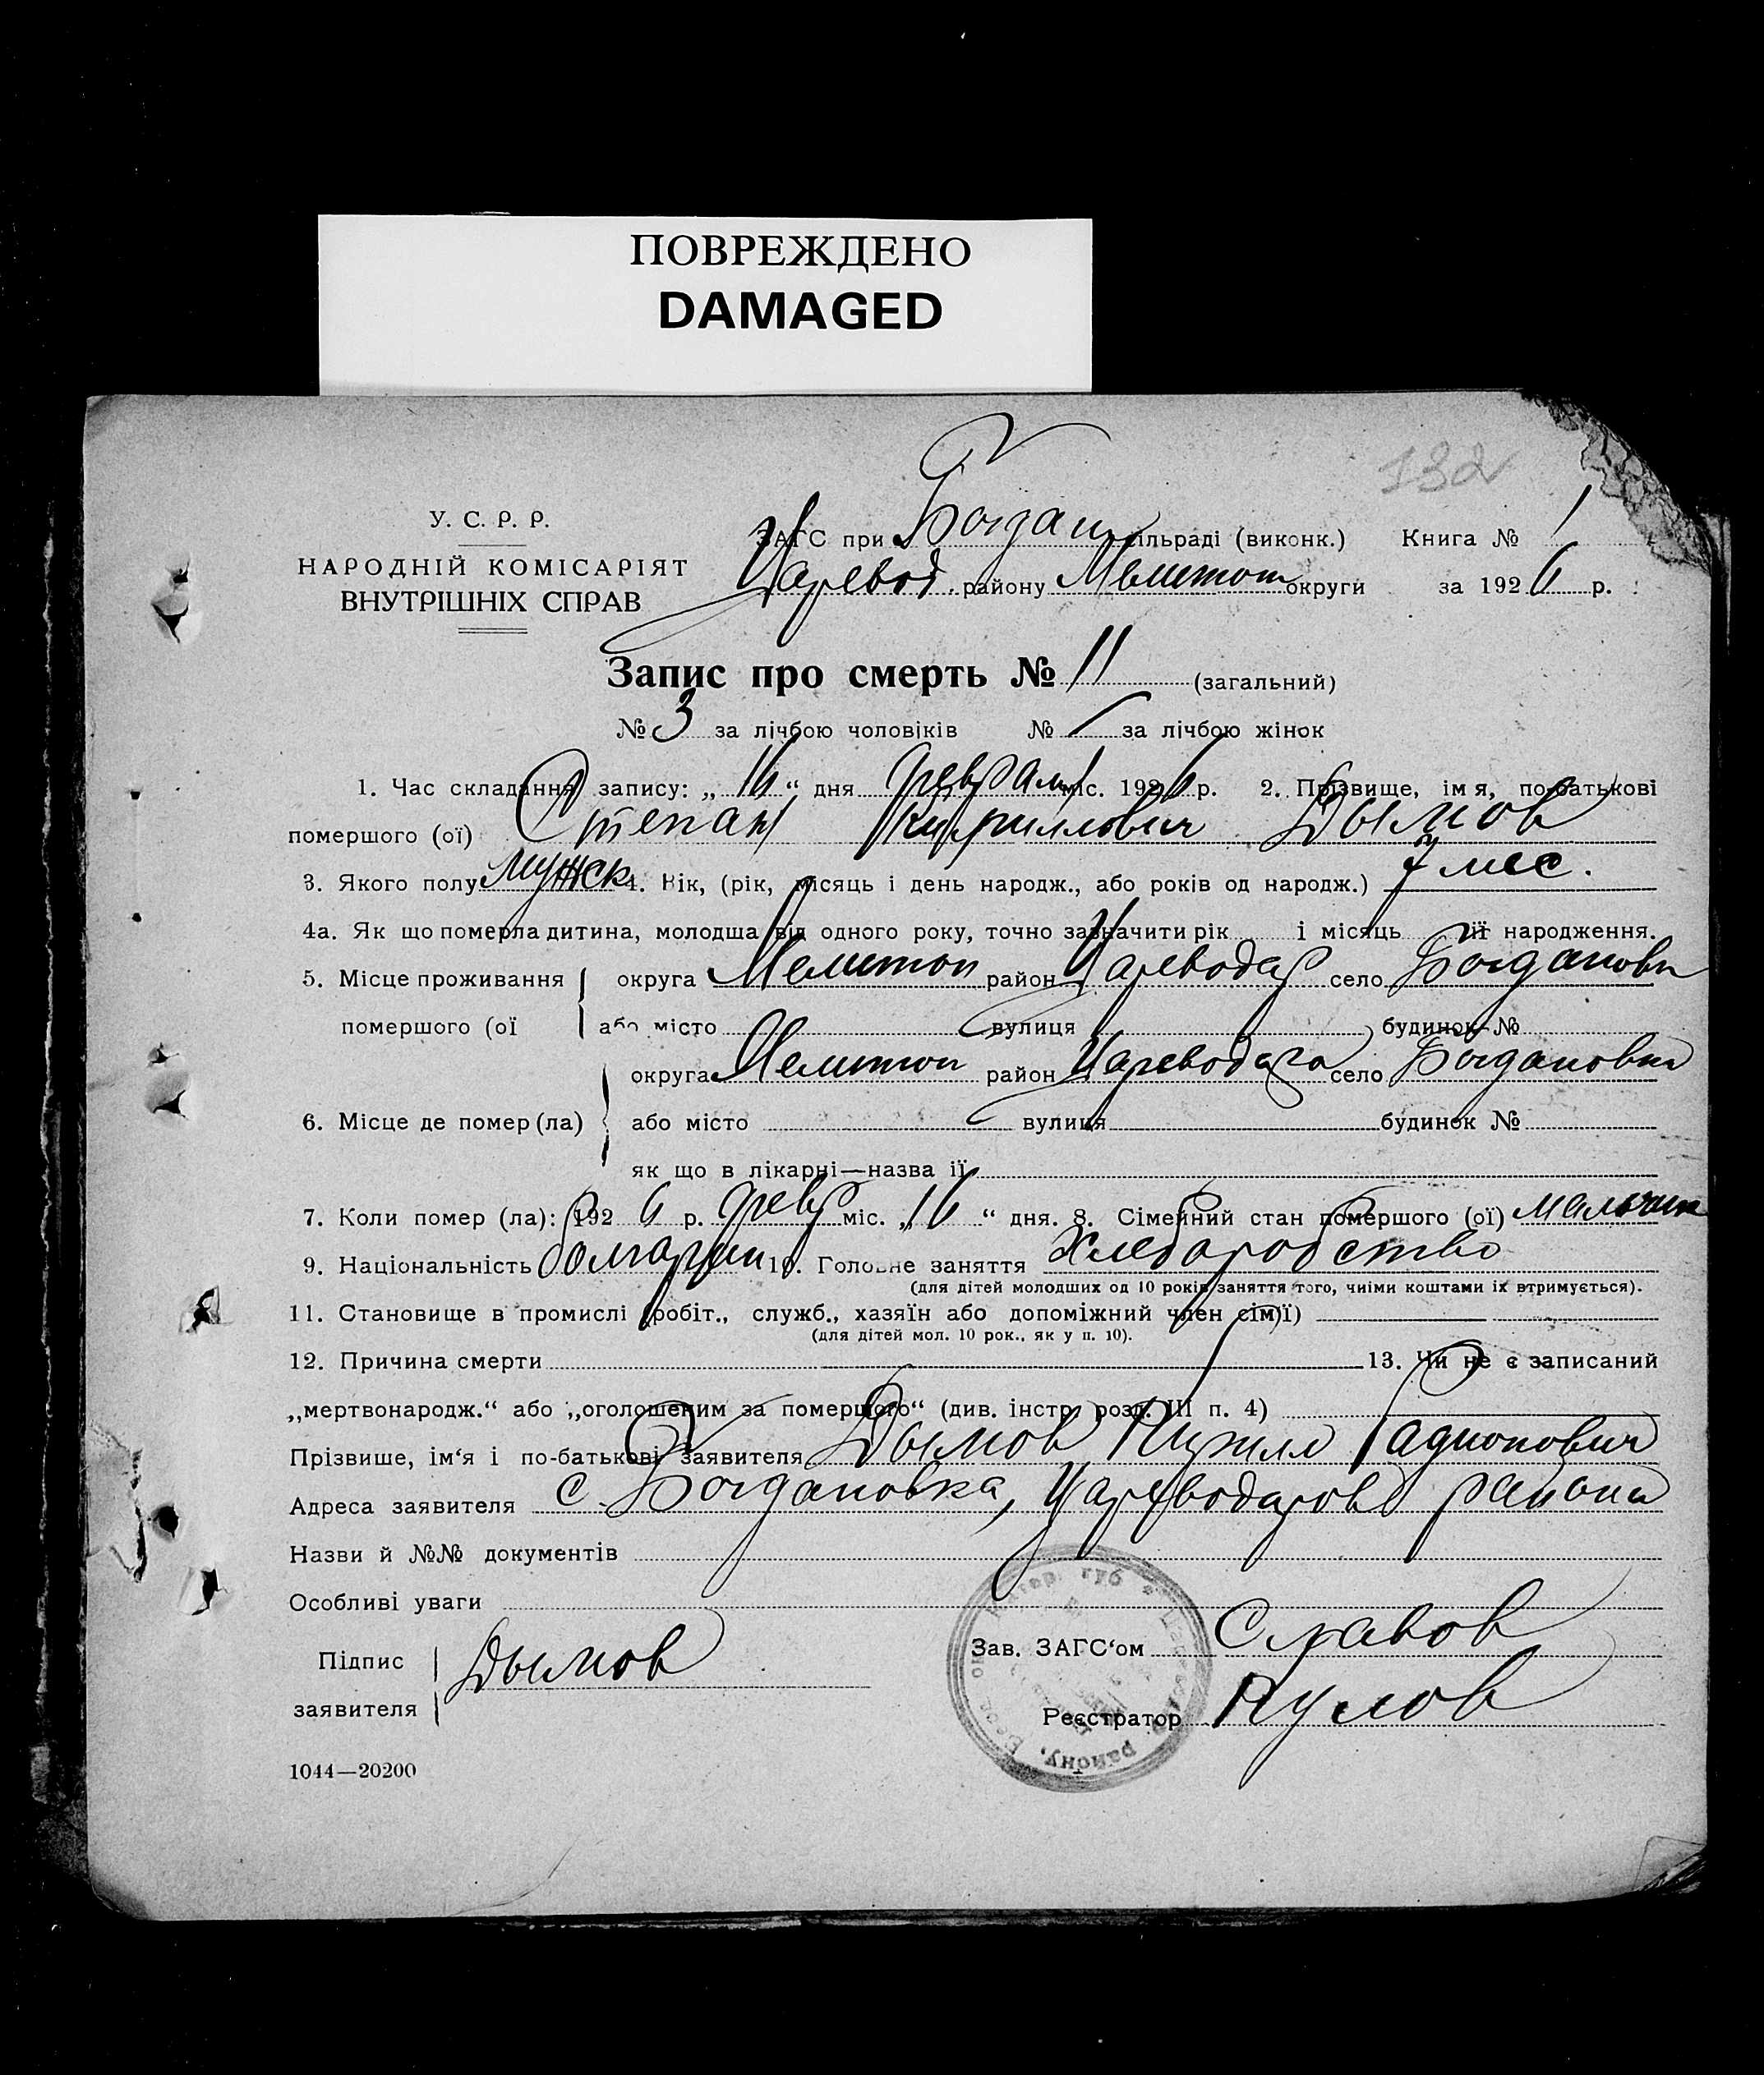 ПОВРЕЖДЕНО
DAMAGED
132
У. С. Р. Р.
НАРОДНІЙ КОМІСАРІЯТ
ВНУТРІШНІХ СПРАВ
ЗАГС при Богдан сільраді (виконк.) Книга № 1
Царевод. району Мелитоп округи за 1926 р.
Запис про смерть № 11 (загальний)
№ 3 за лічбою чоловіків № за лічбою жінок
1. Час складання запису: „16“ дня февраля міс. 1926 р. 2. Прізвище, ім я, по-батькові
помершого (ої) Степан Кириллович Дымов
3. Якого полу мужск 4. Вік, (рік, місяць і день народж., або років од народж.) 7 мес.
4а. Як що померла дитина, молодша від одного року, точно зазначити рік і місяць її народження.
5. Місце проживання округа Мелитоп район Цареводар село Богдановка
помершого (ої або місто вулиця будинок №
округа Мелитоп район Цареводаро село Богдановка
6. Місце де помер (ла) або місто вулиця будинок №
як що в лікарні—назва ії
7. Коли помер (ла): 1926 р. февр міс. „16“ дня. 8. Сімейний стан помершого (ої) мальчик
9. Національність болгарин 10. Головне заняття Хлебородство
(для дітей молодших од 10 років заняття того, чиїми коштами їх втримується).
11. Становище в промислі (робіт., служб., хазяїн або допоміжний член сім'ї)
(для дітей мол. 10 рок., як у п. 10).
12. Причина смерти 13. Чи не є записаний
„мертвонародж.“ або „оголошеним за померщого“ (див. інстр. розд. III п. 4)
Прізвише, ім‘я і по-батькові заявителя Дымов Кирилл Радионович
Адреса заявителя с. Богдановка, Цареводаров района
Назви й №№ документів
Особливі уваги
Підпис заявителя Дымов
Зав. ЗАГС‘ом Славов
Реєстратор Кулов
району.
1044—20200